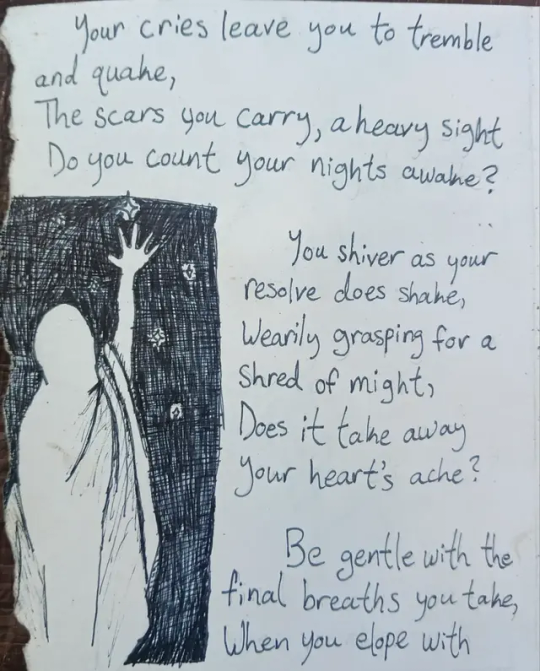 Your cries leave you to tremble
and quake,
The scars you carry, a heavy sight
Do you count your nights awake?
You shiver as your
resolve does shake,
Wearily grasping for a
shred of might,
Does it take away
your heart's ache?
Be gentle with the
final breaths you take,
When you elope with